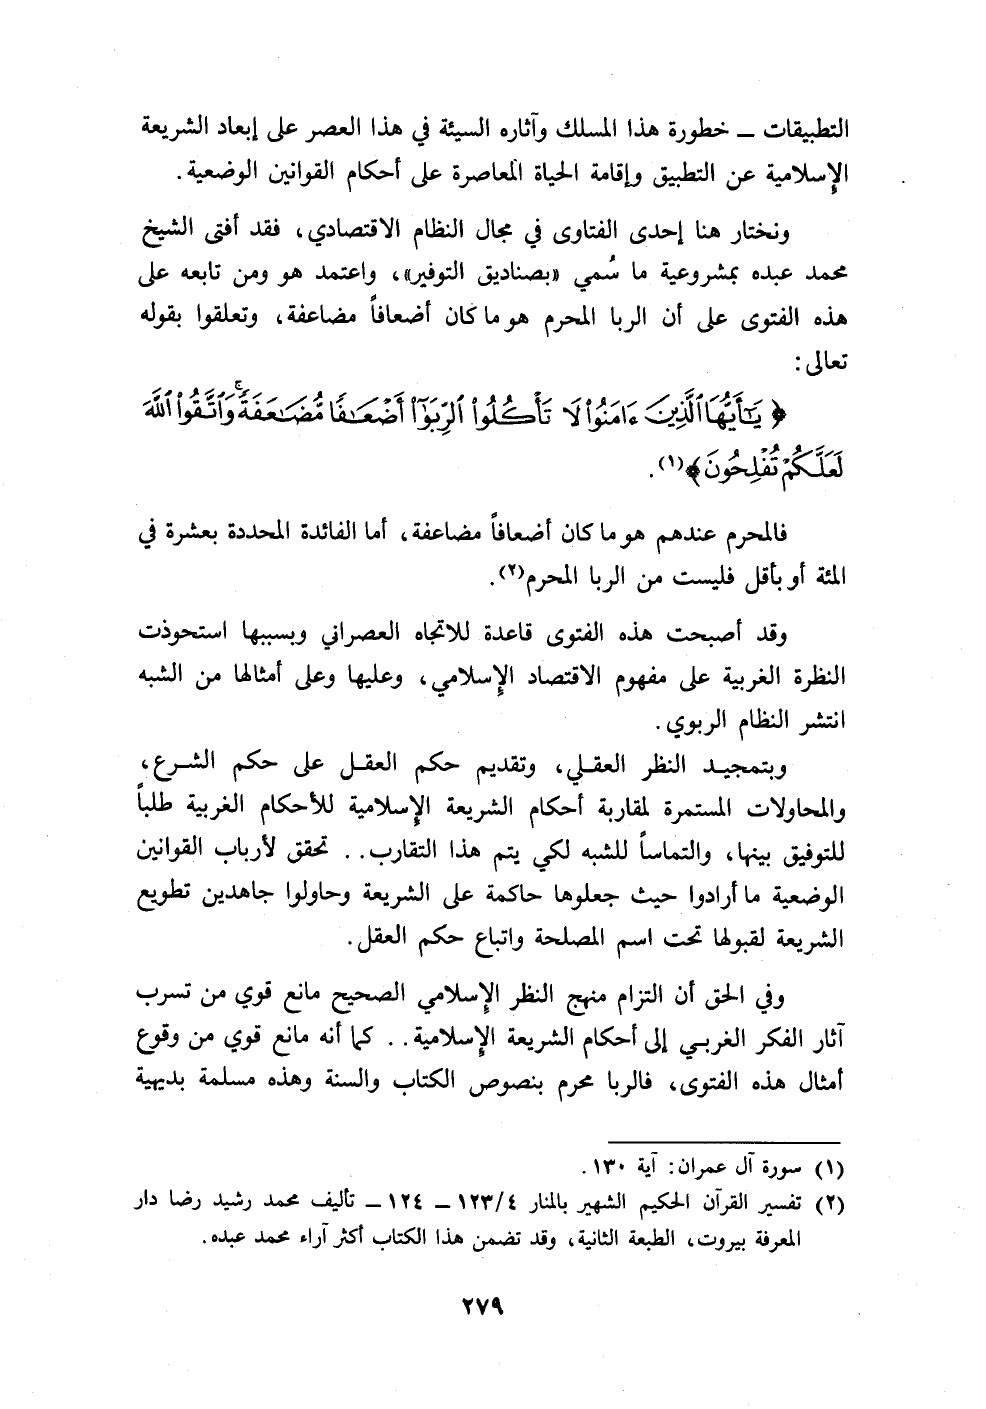 التطبيقات ـ خطورة هذا المسلك وآثاره السيئة في هذا العصر على إبعاد الشريعة
الإسلامية عن التطبيق وإقامة الحياة المعاصرة على أحكام القوانين الوضعية .
ونختار هنا إحدى الفتاوى في مجال النظام الاقتصادي، فقد أفتى الشيخ
محمد عبده بمشروعية ما سُمي «بصناديق التوفير»، واعتمد هو ومن تابعه على
هذه الفتوى على أن الربا المحرم هو ما كان أضعافاً مضاعفة، وتعلقوا بقوله
تعالى :
﴿ يَٰٓأَيُّهَا ٱلَّذِينَ ءَامَنُوا۟ لَا تَأْكُلُوا۟ ٱلرِّبَوٰٓا۟ أَضْعَٰفًا مُّضَٰعَفَةً ۚ وَٱتَّقُوا۟ ٱللَّهَ
لَعَلَّكُمْ تُفْلِحُونَ ﴾(١) .
فالمحرم عندهم هو ما كان أضعافاً مضاعفة، أما الفائدة المحددة بعشرة في
المئة أو بأقل فليست من الربا المحرم(٢) .
وقد أصبحت هذه الفتوى قاعدة للاتجاه العصراني وبسببها استحوذت
النظرة الغربية على مفهوم الاقتصاد الإسلامي، وعليها وعلى أمثالها من الشبه
انتشر النظام الربوي .
وبتمجيد النظر العقلي، وتقديم حكم العقل على حكم الشرع،
والمحاولات المستمرة لمقاربة أحكام الشريعة الإسلامية للأحكام الغربية طلباً
للتوفيق بينها، والتماساً للشبه لكي يتم هذا التقارب . . تحقق لأرباب القوانين
الوضعية ما أرادوا حيث جعلوها حاكمة على الشريعة وحاولوا جاهدين تطويع
الشريعة لقبولها تحت اسم المصلحة واتباع حكم العقل .
وفي الحق أن التزام منهج النظر الإسلامي الصحيح مانع قوي من تسرب
آثار الفكر الغربي إلى أحكام الشريعة الإسلامية . . كما أنه مانع قوي من وقوع
أمثال هذه الفتوى، فالربا محرم بنصوص الكتاب والسنة وهذه مسلمة بديهية
(١) سورة آل عمران : آية ١٣٠ .
(٢) تفسير القرآن الحكيم الشهير بالمنار ٤/ ١٢٣ ـ ١٢٤ ـ تأليف محمد رشيد رضا دار
المعرفة بيروت، الطبعة الثانية، وقد تضمن هذا الكتاب أكثر آراء محمد عبده .
٢٧٩